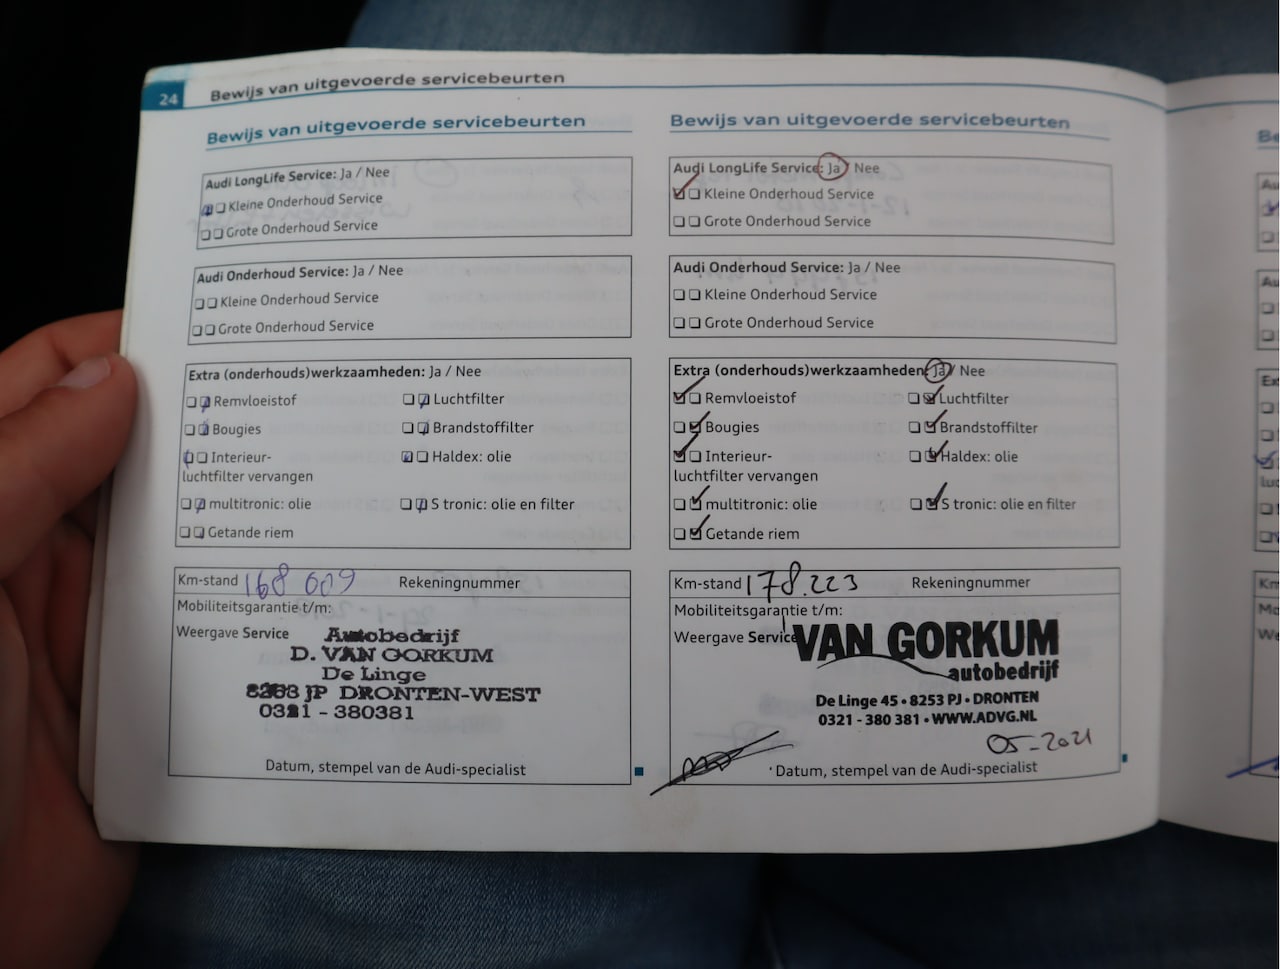 24 Bewijs van uitgevoerde servicebeurten
Bewijs van uitgevoerde servicebeurten
Audi LongLife Service: Ja / Nee
Kleine Onderhoud Service
Grote Onderhoud Service
Audi Onderhoud Service: Ja / Nee
Kleine Onderhoud Service
Grote Onderhoud Service
Extra (onderhouds)werkzaamheden: Ja / Nee
Remvloeistof Luchtfilter
Bougies Brandstoffilter
Interieur- Haldex: olie
luchtfilter vervangen
multitronic: olie S tronic: olie en filter
Getande riem
Km-stand 168 009 Rekeningnummer
Mobiliteitsgarantie t/m:
Weergave Service Autobedrijf
D. VAN GORKUM
De Linge
JP DRONTEN-WEST
0321 - 380381
Datum, stempel van de Audi-specialist
Bewijs van uitgevoerde servicebeurten
Audi LongLife Service: Ja / Nee
Kleine Onderhoud Service
Grote Onderhoud Service
Audi Onderhoud Service: Ja / Nee
Kleine Onderhoud Service
Grote Onderhoud Service
Extra (onderhouds)werkzaamheden: Ja / Nee
Remvloeistof Luchtfilter
Bougies Brandstoffilter
Interieur- Haldex: olie
luchtfilter vervangen
multitronic: olie S tronic: olie en filter
Getande riem
Km-stand 178.223 Rekeningnummer
Mobiliteitsgarantie t/m:
Weergave Service VAN GORKUM
autobedrijf
De Linge 45 • 8253 PJ • DRONTEN
0321 - 380 381 • WWW.ADVG.NL
05-2021
Datum, stempel van de Audi-specialist